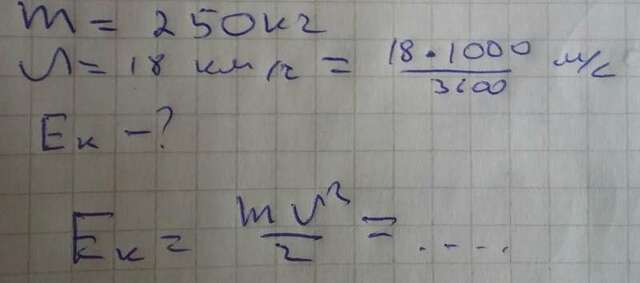 m = 250 кг
v = 18 км/ч = 18 · 1000 / 3600 м/с
Eк - ?
Eк = mv²/2 = .....